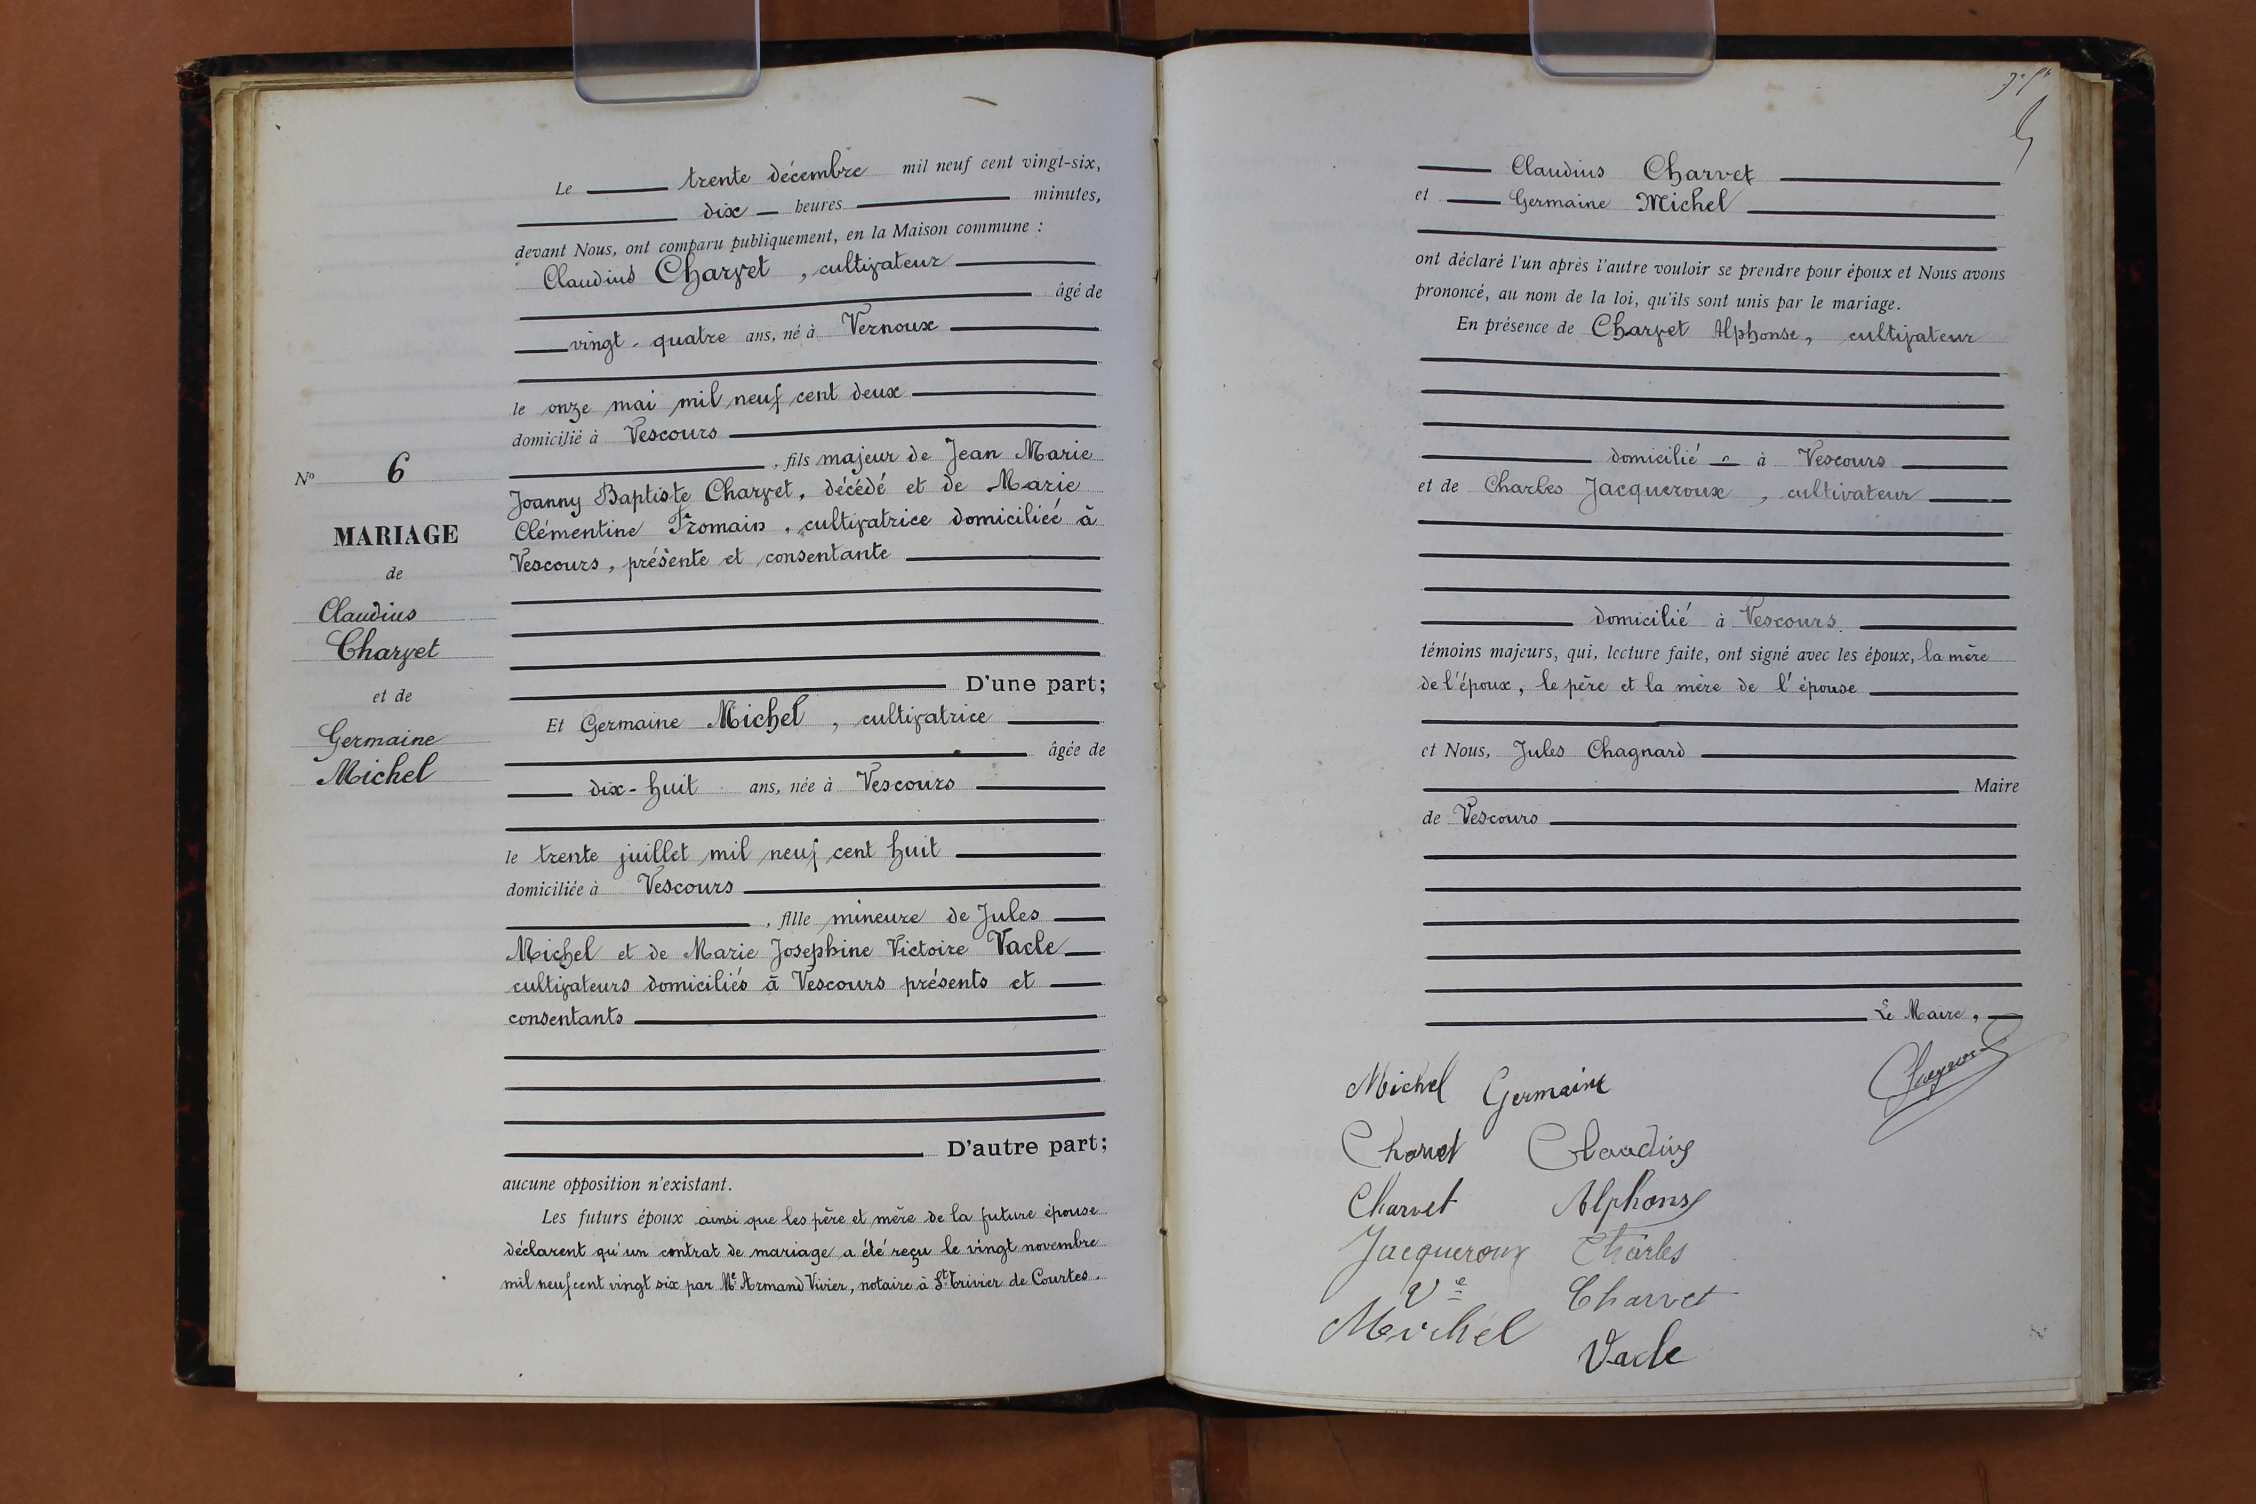 Le trente décembre mil neuf cent vingt-six,
dix heures minutes,
devant Nous, ont comparu publiquement, en la Maison commune :
Claudius Charvet, cultivateur
âgé de
vingt-quatre ans, né à Vernoux
le onze mai mil neuf cent deux
domicilié à Vescours
, fils majeur de Jean Marie
Joanny Baptiste Charvet, décédé et de Marie
Clémentine Fromain, cultivatrice domiciliée à
Vescours, présente et consentante
D'une part;
Et Germaine Michel, cultivatrice
âgée de
dix-huit ans, née à Vescours
le trente juillet mil neuf cent huit
domiciliée à Vescours
, fille mineure de Jules
Michel et de Marie Josephine Victoire Vacle
cultivateurs domiciliés à Vescours présents et
consentants
D'autre part;
aucune opposition n'existant.
Les futurs époux ainsi que les père et mère de la future épouse
déclarent qu'un contrat de mariage a été reçu le vingt novembre
mil neuf cent vingt six par Me Armand Vivier, notaire à St Trivier de Courtes.
No 6
MARIAGE
de
Claudius
Charvet
et de
Germaine
Michel
Claudius Charvet
et Germaine Michel
ont déclaré l'un après l'autre vouloir se prendre pour époux et Nous avons
prononcé, au nom de la loi, qu'ils sont unis par le mariage.
En présence de Charvet Alphonse, cultivateur
domicilié à Vescours
et de Charles Jacqueroux, cultivateur
domicilié à Vescours.
témoins majeurs, qui, lecture faite, ont signé avec les époux, la mère
de l'époux, le père et la mère de l'épouse
et Nous, Jules Chagnard
Maire
de Vescours
Le Maire,
Michel Germaine
Charvet Claudius
Charvet Alphonse
Jacqueroux Charles
Ve Charvet
Michel
Vacle